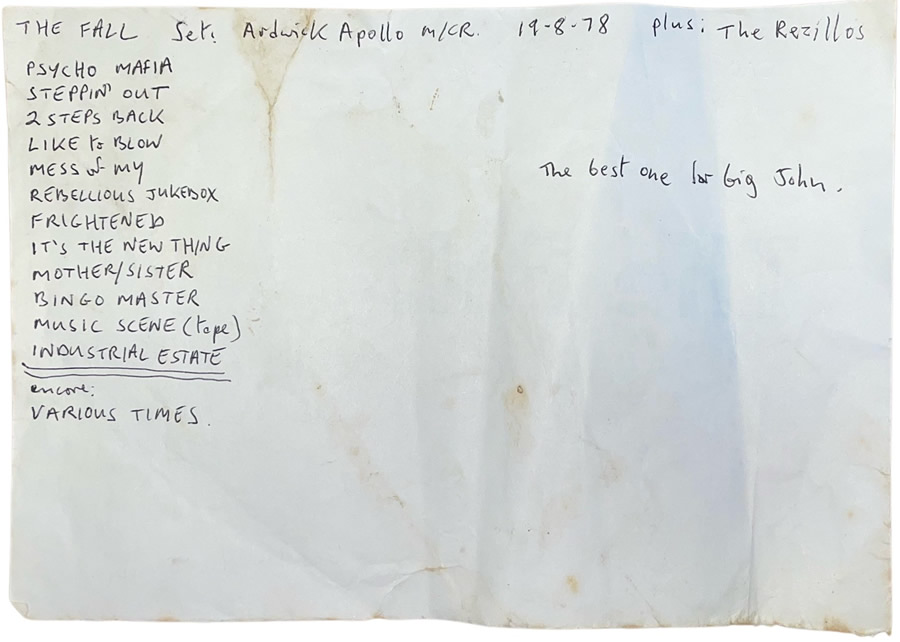 THE FALL Set: Ardwick Apollo M/CR. 19-8-78 plus: The Rezillos
PSYCHO MAFIA
STEPPIN' OUT
2 STEPS BACK
LIKE to BLOW
MESS of MY
REBELLIOUS JUKEBOX
FRIGHTENED
IT'S THE NEW THING
MOTHER/SISTER
BINGO MASTER
MUSIC SCENE (tape)
INDUSTRIAL ESTATE
encore:
VARIOUS TIMES.
The best one for big John.